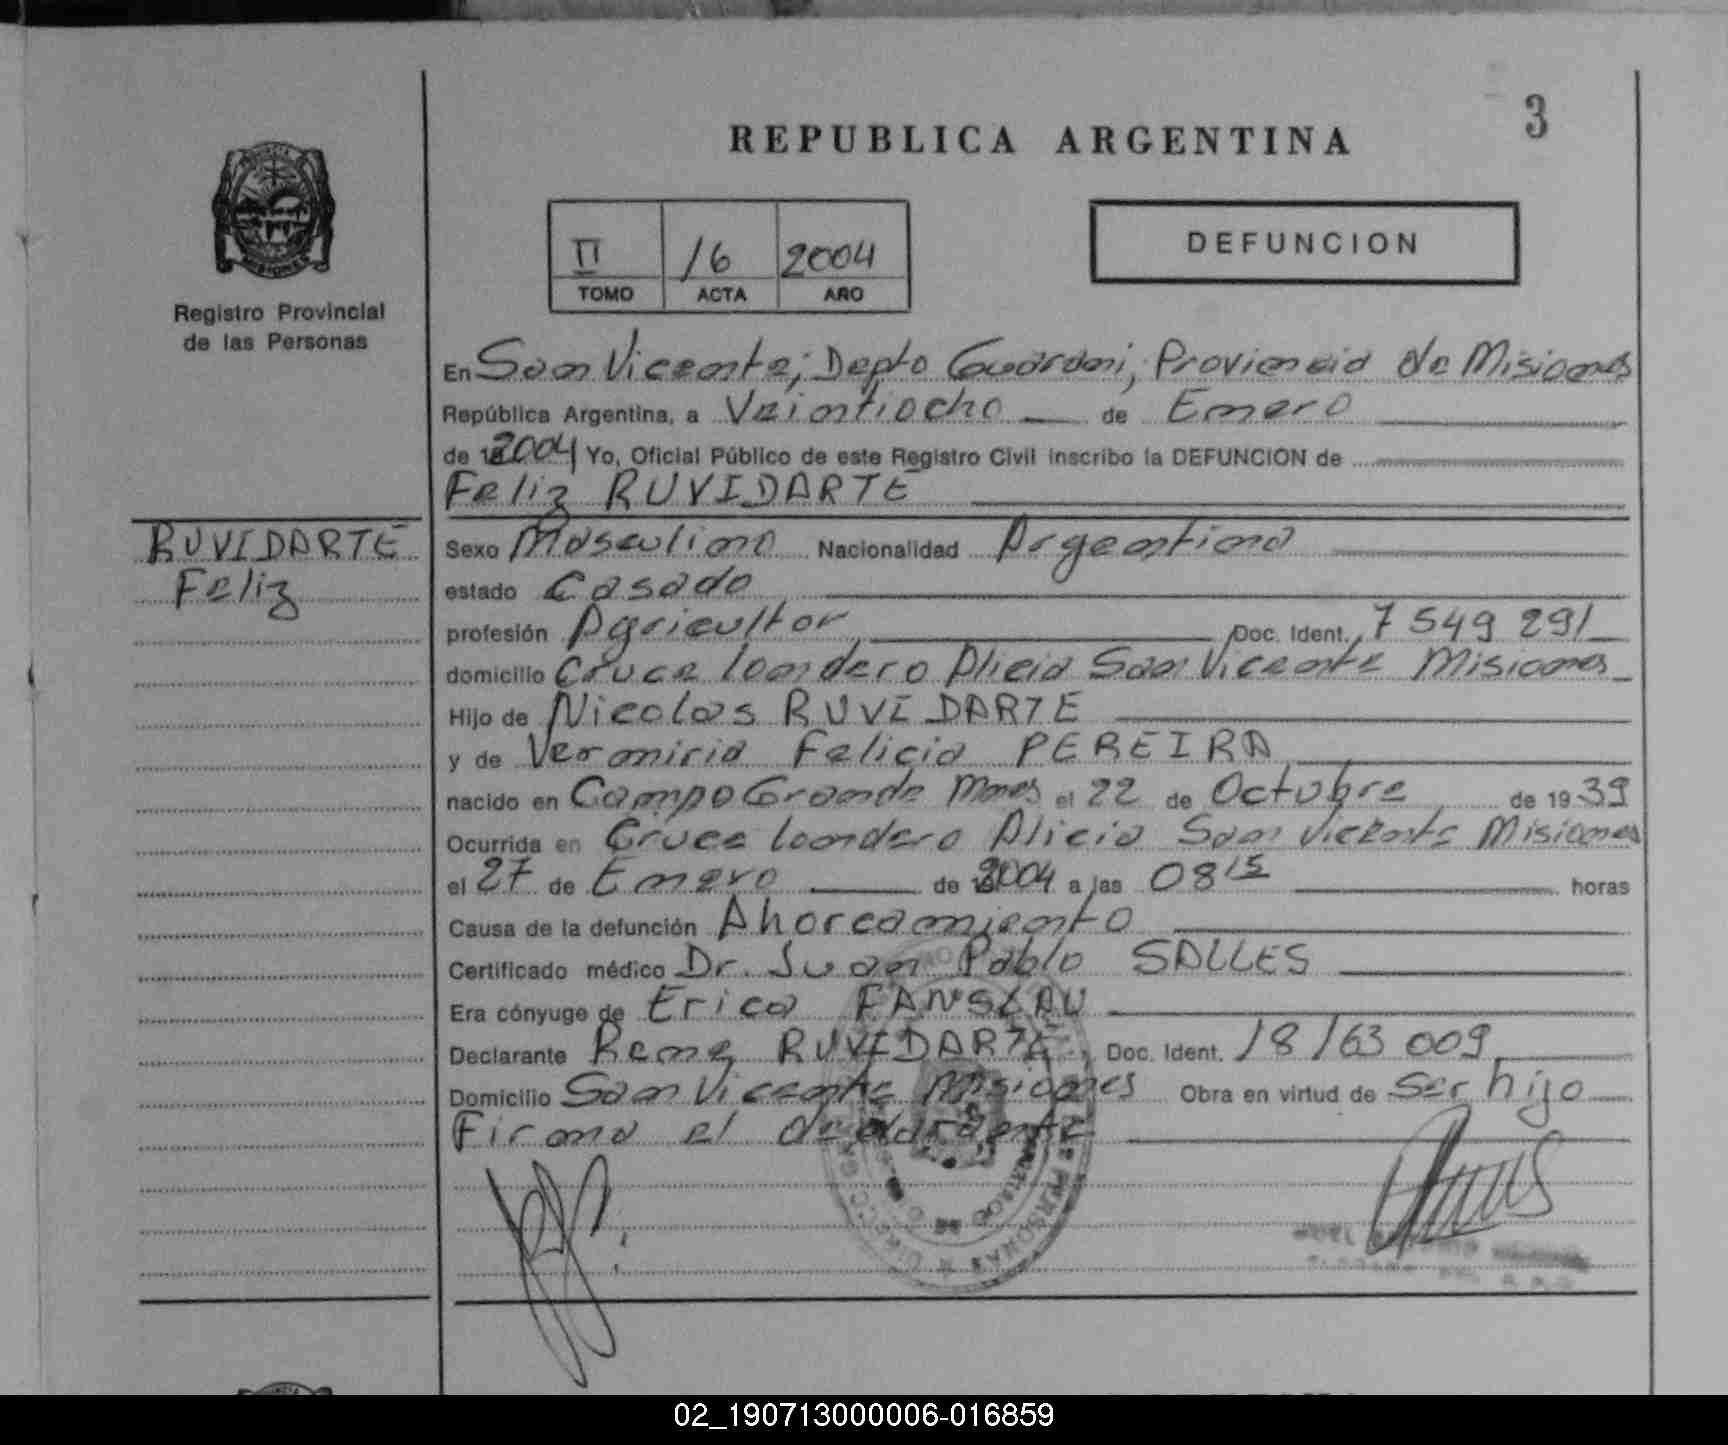 3
REPUBLICA ARGENTINA
PROVINCIA DE MISIONES
Registro Provincial
de las Personas
II 16 2004
TOMO ACTA AÑO
DEFUNCION
En San Vicente; Depto Guarani; Provincia de Misiones
República Argentina, a Veintiocho de Enero
de 2004 Yo, Oficial Público de este Registro Civil inscribo la DEFUNCION de
Feliz RUVIDARTE
RUVIDARTE
Feliz
Sexo Masculino Nacionalidad Argentina
estado Casado
profesión Agricultor Doc. Ident. 7 549 291
domicilio Cruce londero Alicia San Vicente Misiones
Hijo de Nicolas RUVIDARTE
y de Felicia PEREIRA
nacido en Campo Grande Mnes el 22 de Octubre de 1939
Ocurrida en Cruce londero Alicia San Vicente Misiones
el 27 de Enero de 2004 a las 08 15 horas
Causa de la defunción Ahorcamiento
Certificado médico Dr. Juan Pablo SALLES
Era cónyuge de Erica FANSLAU
Declarante Rene RUVIDARTE Doc. Ident. 18 163 009
Domicilio San Vicente Misiones Obra en virtud de Ser hijo
Firma el declarante
02_190713000006-016859